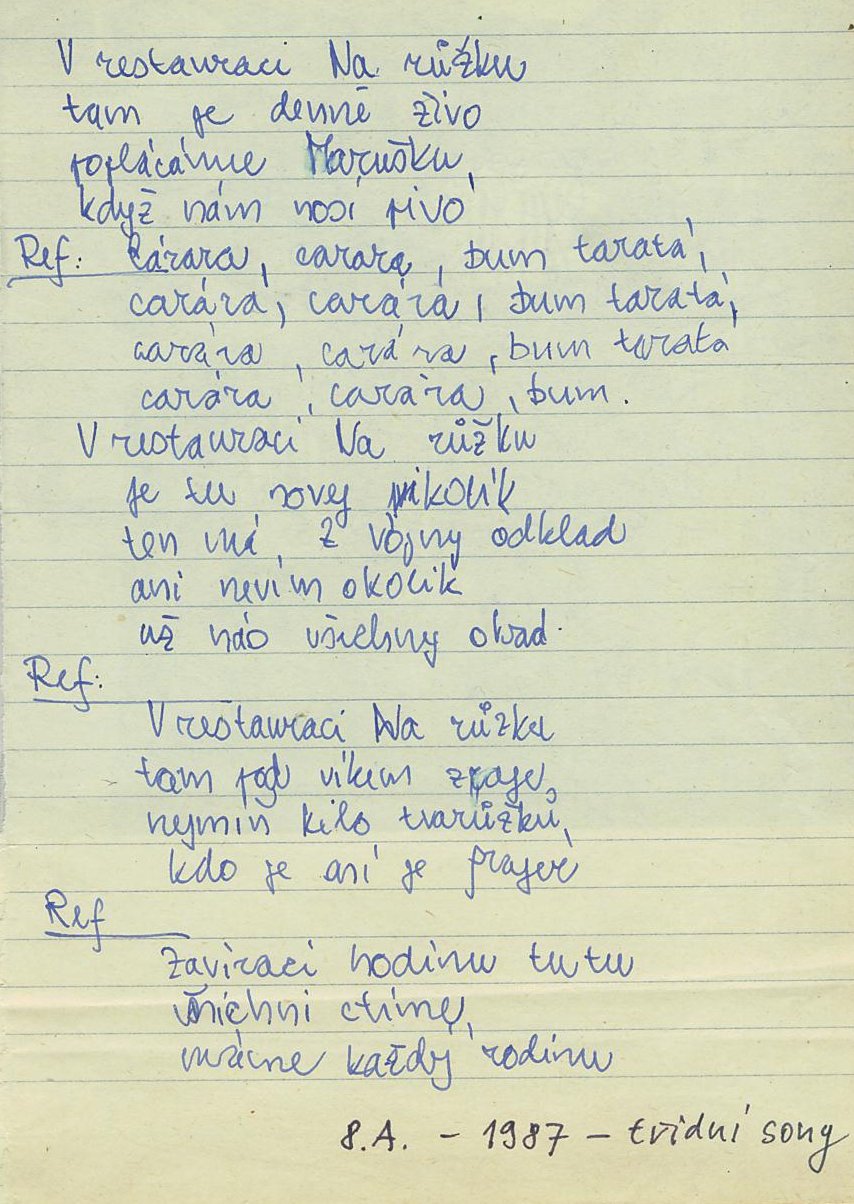 V restauraci Na růžku
tam je denně živo
poplácáme Marušku,
když nám nosí pivo
Ref: Cárara, carara, bum tarata,
carára, carára, bum tarata,
carára, carára, bum tarata
carára, carára, bum.
V restauraci Na růžku
je tu novej pikolík
ten má z vojny odklad
ani nevím okolik
už nás všechny okrad.
Ref:
V restauraci Na růžku
tam pod víkem zraje,
nejmíň kilo tvarůžků,
kdo je sní je frajer
Ref
Zavírací hodinu tu tu
všichni ctíme,
máme každý rodinu
8.A. - 1987 - třídní song